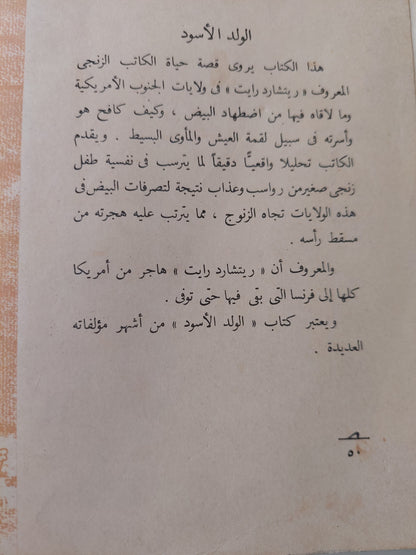 الولد الأسود
هذا الكتاب يروى قصة حياة الكاتب الزنجى
المعروف « ريتشارد رايت » فى ولايات الجنوب الأمريكية
وما لاقاه فيها من اضطهاد البيض ، وكيف كافح هو
وأسرته فى سبيل لقمة العيش والمأوى البسيط . ويقدم
الكاتب تحليلا واقعيًّا دقيقاً لما يترسب فى نفسية طفل
زنجى صغير من رواسب وعذاب نتيجة لتصرفات البيض فى
هذه الولايات تجاه الزنوج ، مما يترتب عليه هجرته من
مسقط رأسه .
والمعروف أن « ريتشارد رايت » هاجر من أمريكا
كلها إلى فرنسا التى بقى فيها حتى توفى .
ويعتبر كتاب « الولد الأسود » من أشهر مؤلفاته
العديدة .
٥٠